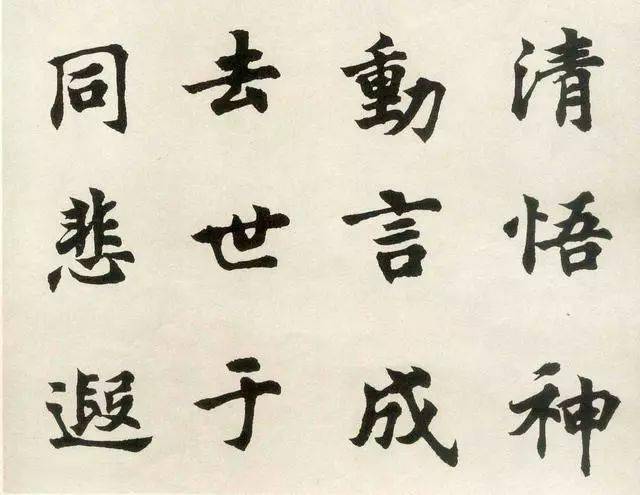 清悟神
動言成
去世于
同悲遐